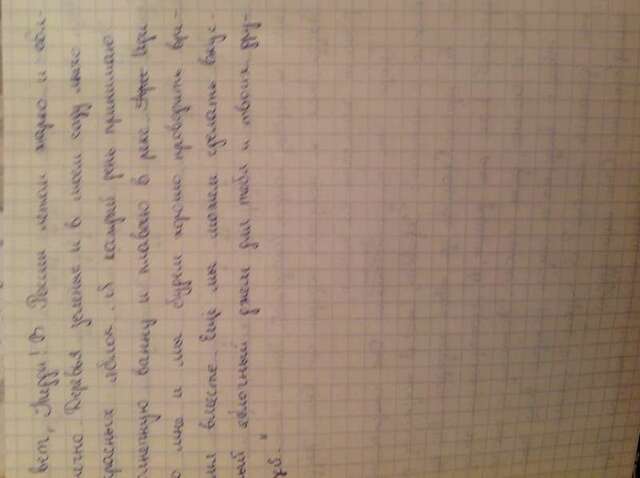 вет, Мерри! В России летом жарко и сол-
нечно. Деревья зеленые и в моем саду много
красных яблок. Я каждый день принимаю
олнечную ванну и плаваю в реке. При
о мне и мы будем хорошо проводить вре-
мя вместе. Еще мы можем сделать вкус-
ный яблочный джем для тебя и твоих дру-
зей."